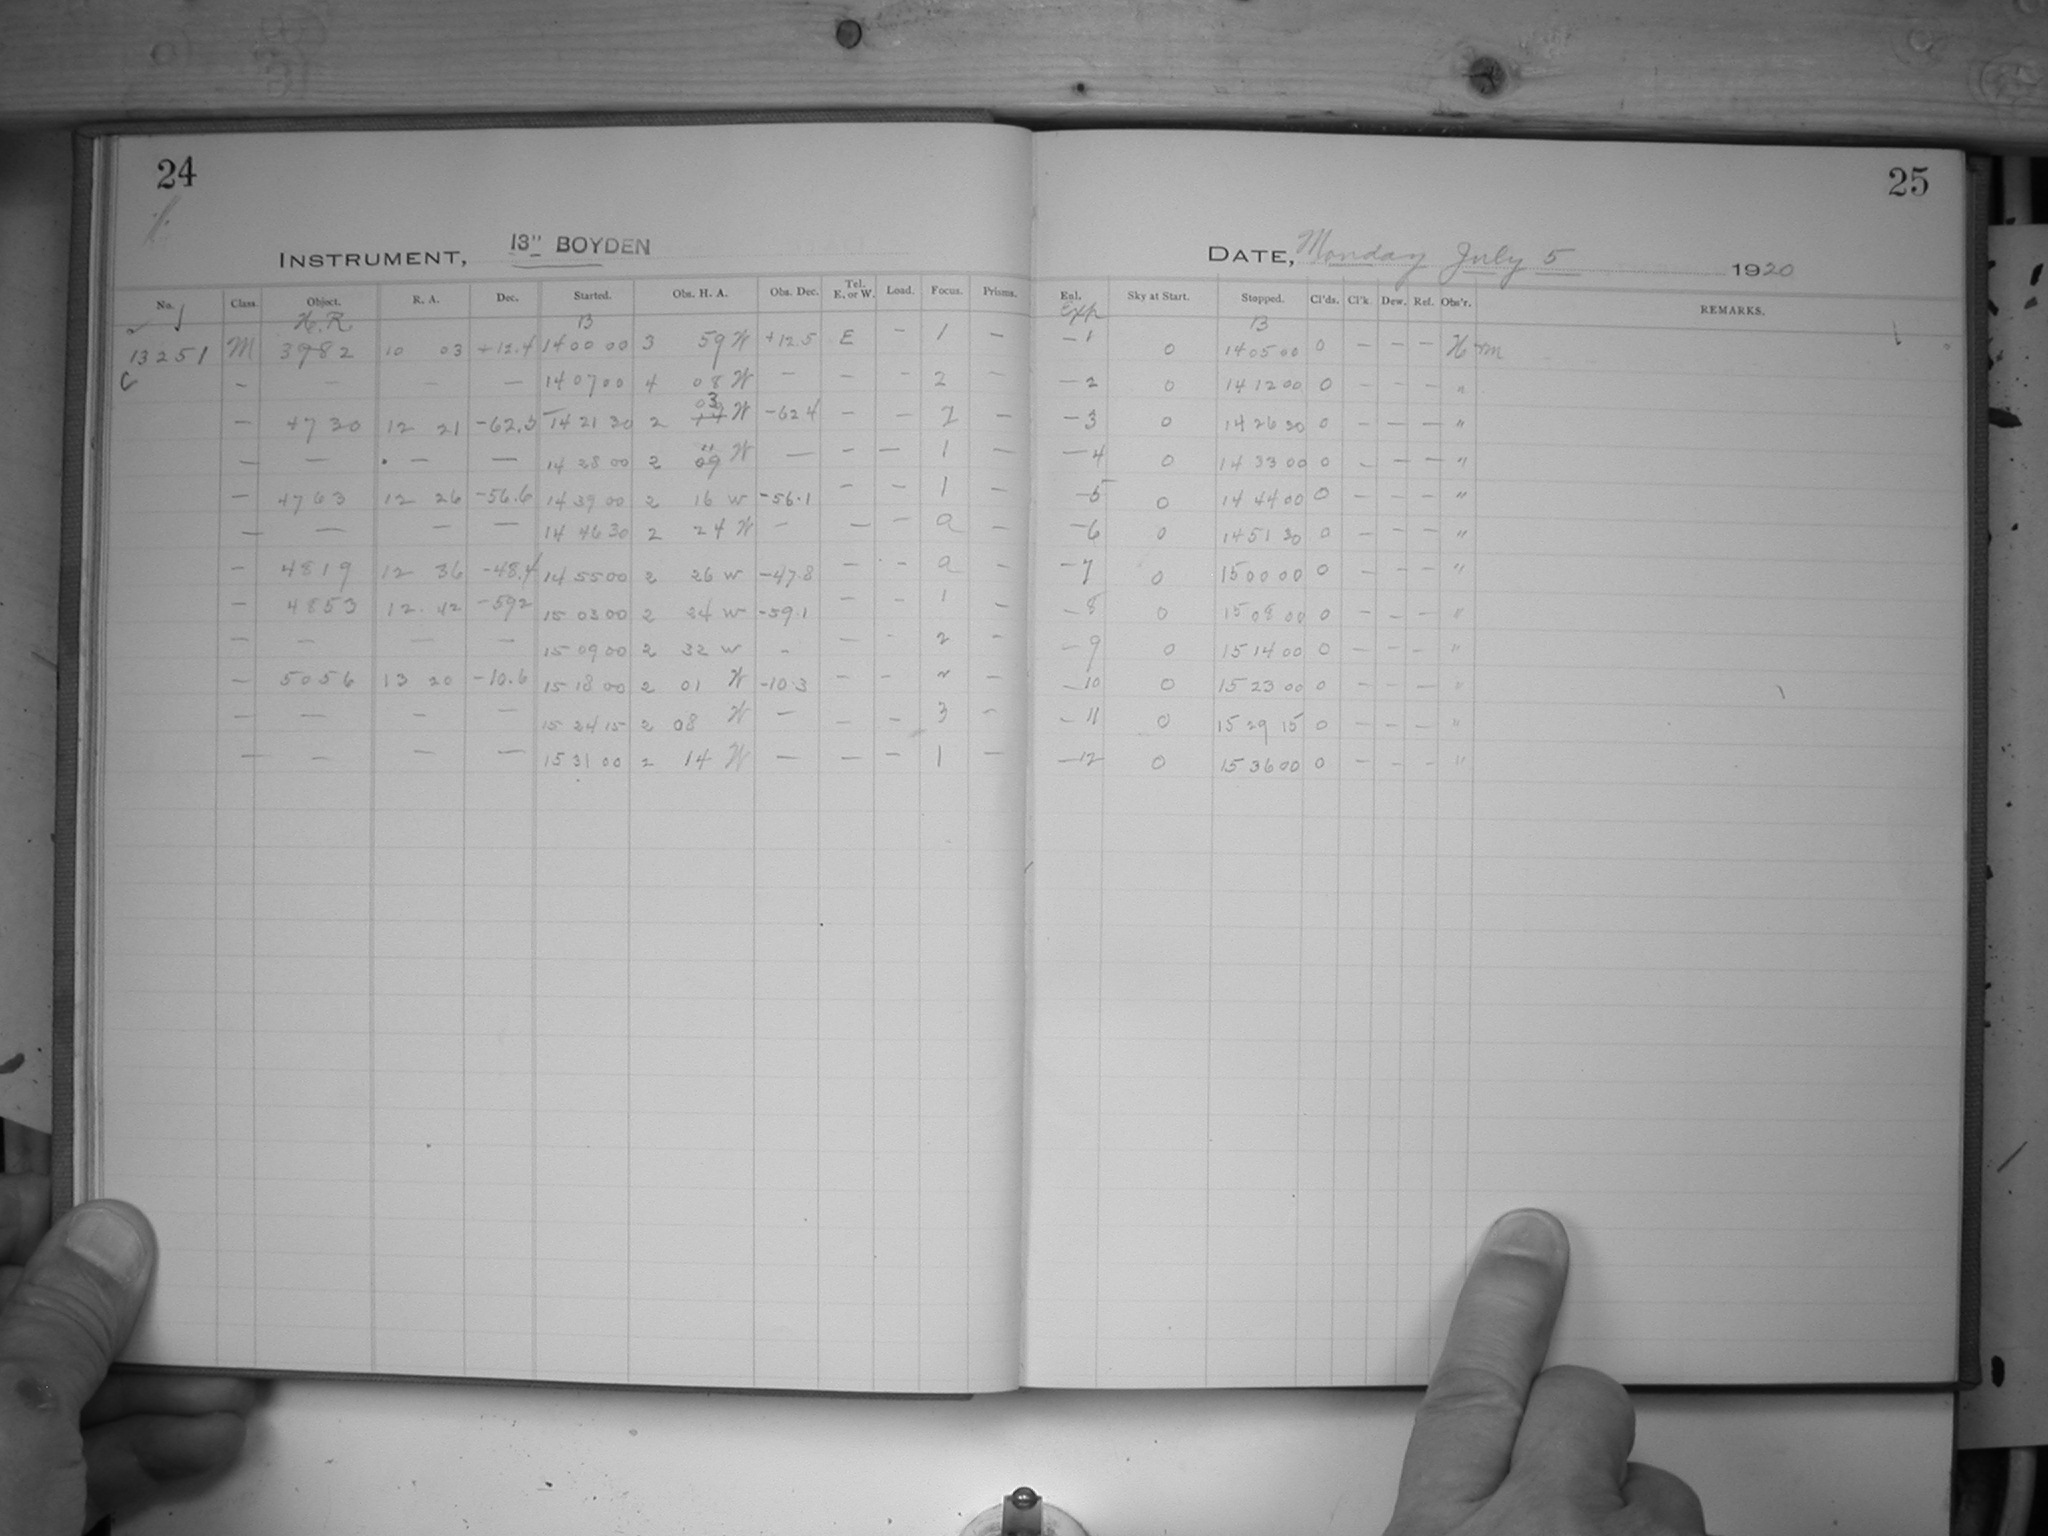 24
25
INSTRUMENT, 13" BOYDEN
DATE, Monday July 5 1920
No. Class. Object. R. A. Dec. Started. Obs. H. A. Obs. Dec. Tel. E. or W. Load. Focus. Prisms. Enl. Exp Sky at Start. Stopped. Cl'ds. Cl'k. Dew. Ref. Obs'r. REMARKS.
H.R. B B
13251 M 3982 10 03 +12.4 14 00 00 3 59 W +12.5 E – 1 – –1 0 14 05 00 0 – – –
C – – – – 14 07 00 4 08 W – – – 2 – –2 0 14 12 00 0 – – – "
– 4730 12 21 -62.5 14 21 30 2 03 W -62.4 – – 2 – –3 0 14 26 30 0 – – – "
– – – – 14 28 00 2 09 W – – – 1 – –4 0 14 33 00 0 – – – "
– 4763 12 26 -56.6 14 39 00 2 16 W -56.1 – – 1 – –5 0 14 44 00 0 – – – "
– – – – 14 46 30 2 24 W – – – 2 – –6 0 14 51 30 0 – – – "
– 4819 12 36 -48.4 14 55 00 2 26 W -47.8 – – 2 – –7 0 15 00 00 0 – – – "
– 4853 12 42 -59.2 15 03 00 2 24 W -59.1 – – 1 – –8 0 15 08 00 0 – – – "
– – – – 15 09 00 2 32 W – – – 2 – –9 0 15 14 00 0 – – – "
– 5056 13 20 -10.6 15 18 00 2 01 W -10.3 – – 2 – –10 0 15 23 00 0 – – – "
– – – – 15 24 15 2 08 W – – – 3 – –11 0 15 29 15 0 – – – "
– – – – 15 31 00 2 14 W – – – 1 – –12 0 15 36 00 0 – – – "